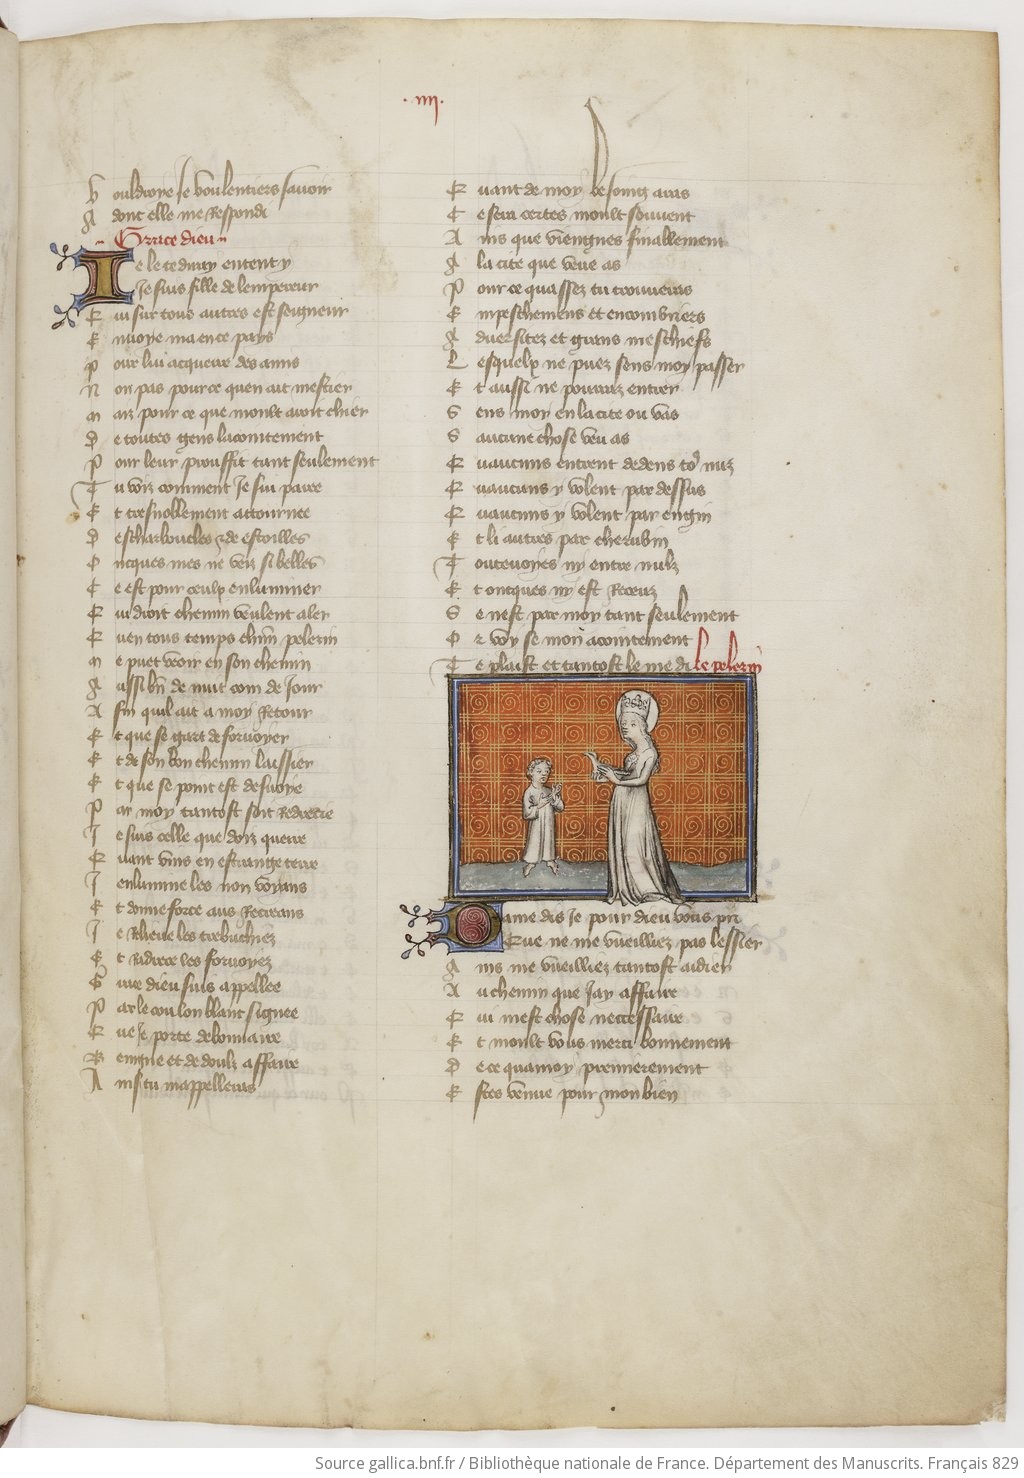 .iiij.
Vouldroye Je voulentiers savoir
Adont elle me Respondi
Grace dieu
Je le te diray entent y
Je suis fille de lempereur
Qui sur tous autres est seigneur
Envoye ma en ce pays
Pour lui acquerre des amis
Non pas pour ce quen ait mestier
Maiz pour ce que moult avoit chier
De toutes gens lacointement
Pour leur prouffit tant seulement
Tu voiz comment Je sui paree
Et tresnoblement attournee
Descharboucles & de estoilles
Oncques mes ne veiz si belles
Ce est pour ceulx enluminer
Qui droit chemin veulent aler
Quen tous temps chun pelerin
Me puet veoir en son chemin
Aussi bn de nuit com de Jour
Afin quil ait a moy Retour
Et que se gart de forvoyer
Et de son bon chemin laissier
Et que se point est desvoye
Par moy tantost soit Redrecie
Je suis celle que doiz querre
Quant vins en estrange terre
Jenlumine les non voyans
Et donne force aus Recreans
Je Rlieve les trebuchiez
Et Rdrece les forvoyez
Grace dieu suis appellee
Par le coulon blanc signee
Que Je porte debonnaire
Benigne et de doulz affaire
Ainsi tu mappelleras
Quant de moy besoing auras
Ce sera certes moult souvent
Ains que viengnes finallement
A la cite que veue as
Pour ce quassez tu trouveras
Empeschemens et encombriers
Adversitez et grans meschiefs
Lesquelx ne puez sens moy passer
Et aussi ne pourraz entrer
Sens moy en la cite ou vas
Saucune chose veu as
Quaucuns entrent dedens to9 nuz
Quaucuns y volent par dessus
Quaucuns y volent par engin
Et li autres par cherubin
Toutevoyes ny entre nulz
Et oncques ny est Receuz
Se nest par moy tant seulement
Or voy se mon acointement
Te plaist et tantost le me di le pelerin
Dame dis Je pour dieu vous pri
Que ne me vueilliez pas lessier
Ains me vueilliez tantost aidier
Au chemin que Jay affaire
Qui mest chose neccessaire
Et moult vous merci bonnement
De ce quamoy premierement
Estes venue pour mon bien
Source gallica.bnf.fr / Bibliothèque nationale de France. Département des Manuscrits. Français 829